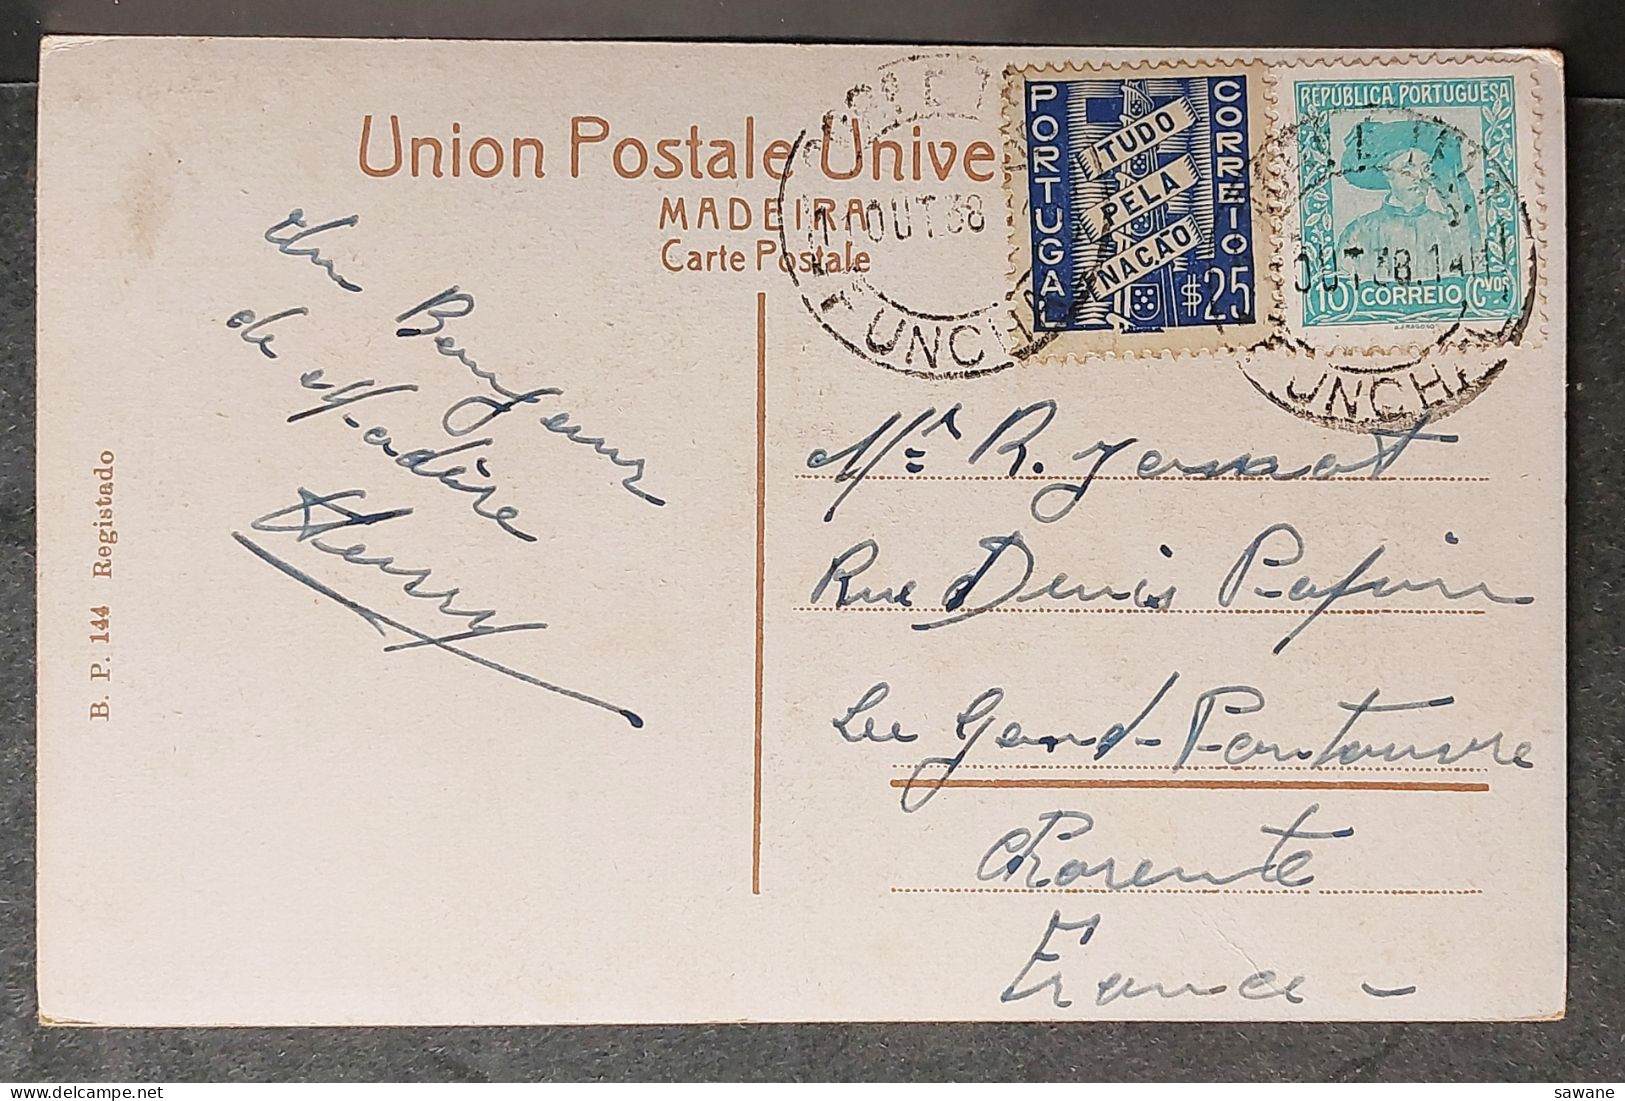 Union Postale Unive
MADEIRA
Carte Postale
PORTUGAL
CORREIO
TUDO
PELA
NAÇÃO
$25
REPÚBLICA PORTUGUESA
10 CORREIO Cvos
OUT.38
FUNCHA
OUT.38.14
UNCHA
Un Bonjour
de Madère
Henry
B. P. 144 Registado
Mr R.
Rue Denis Papin
Le Gond-Pontouvre
Charente
France -
sawane